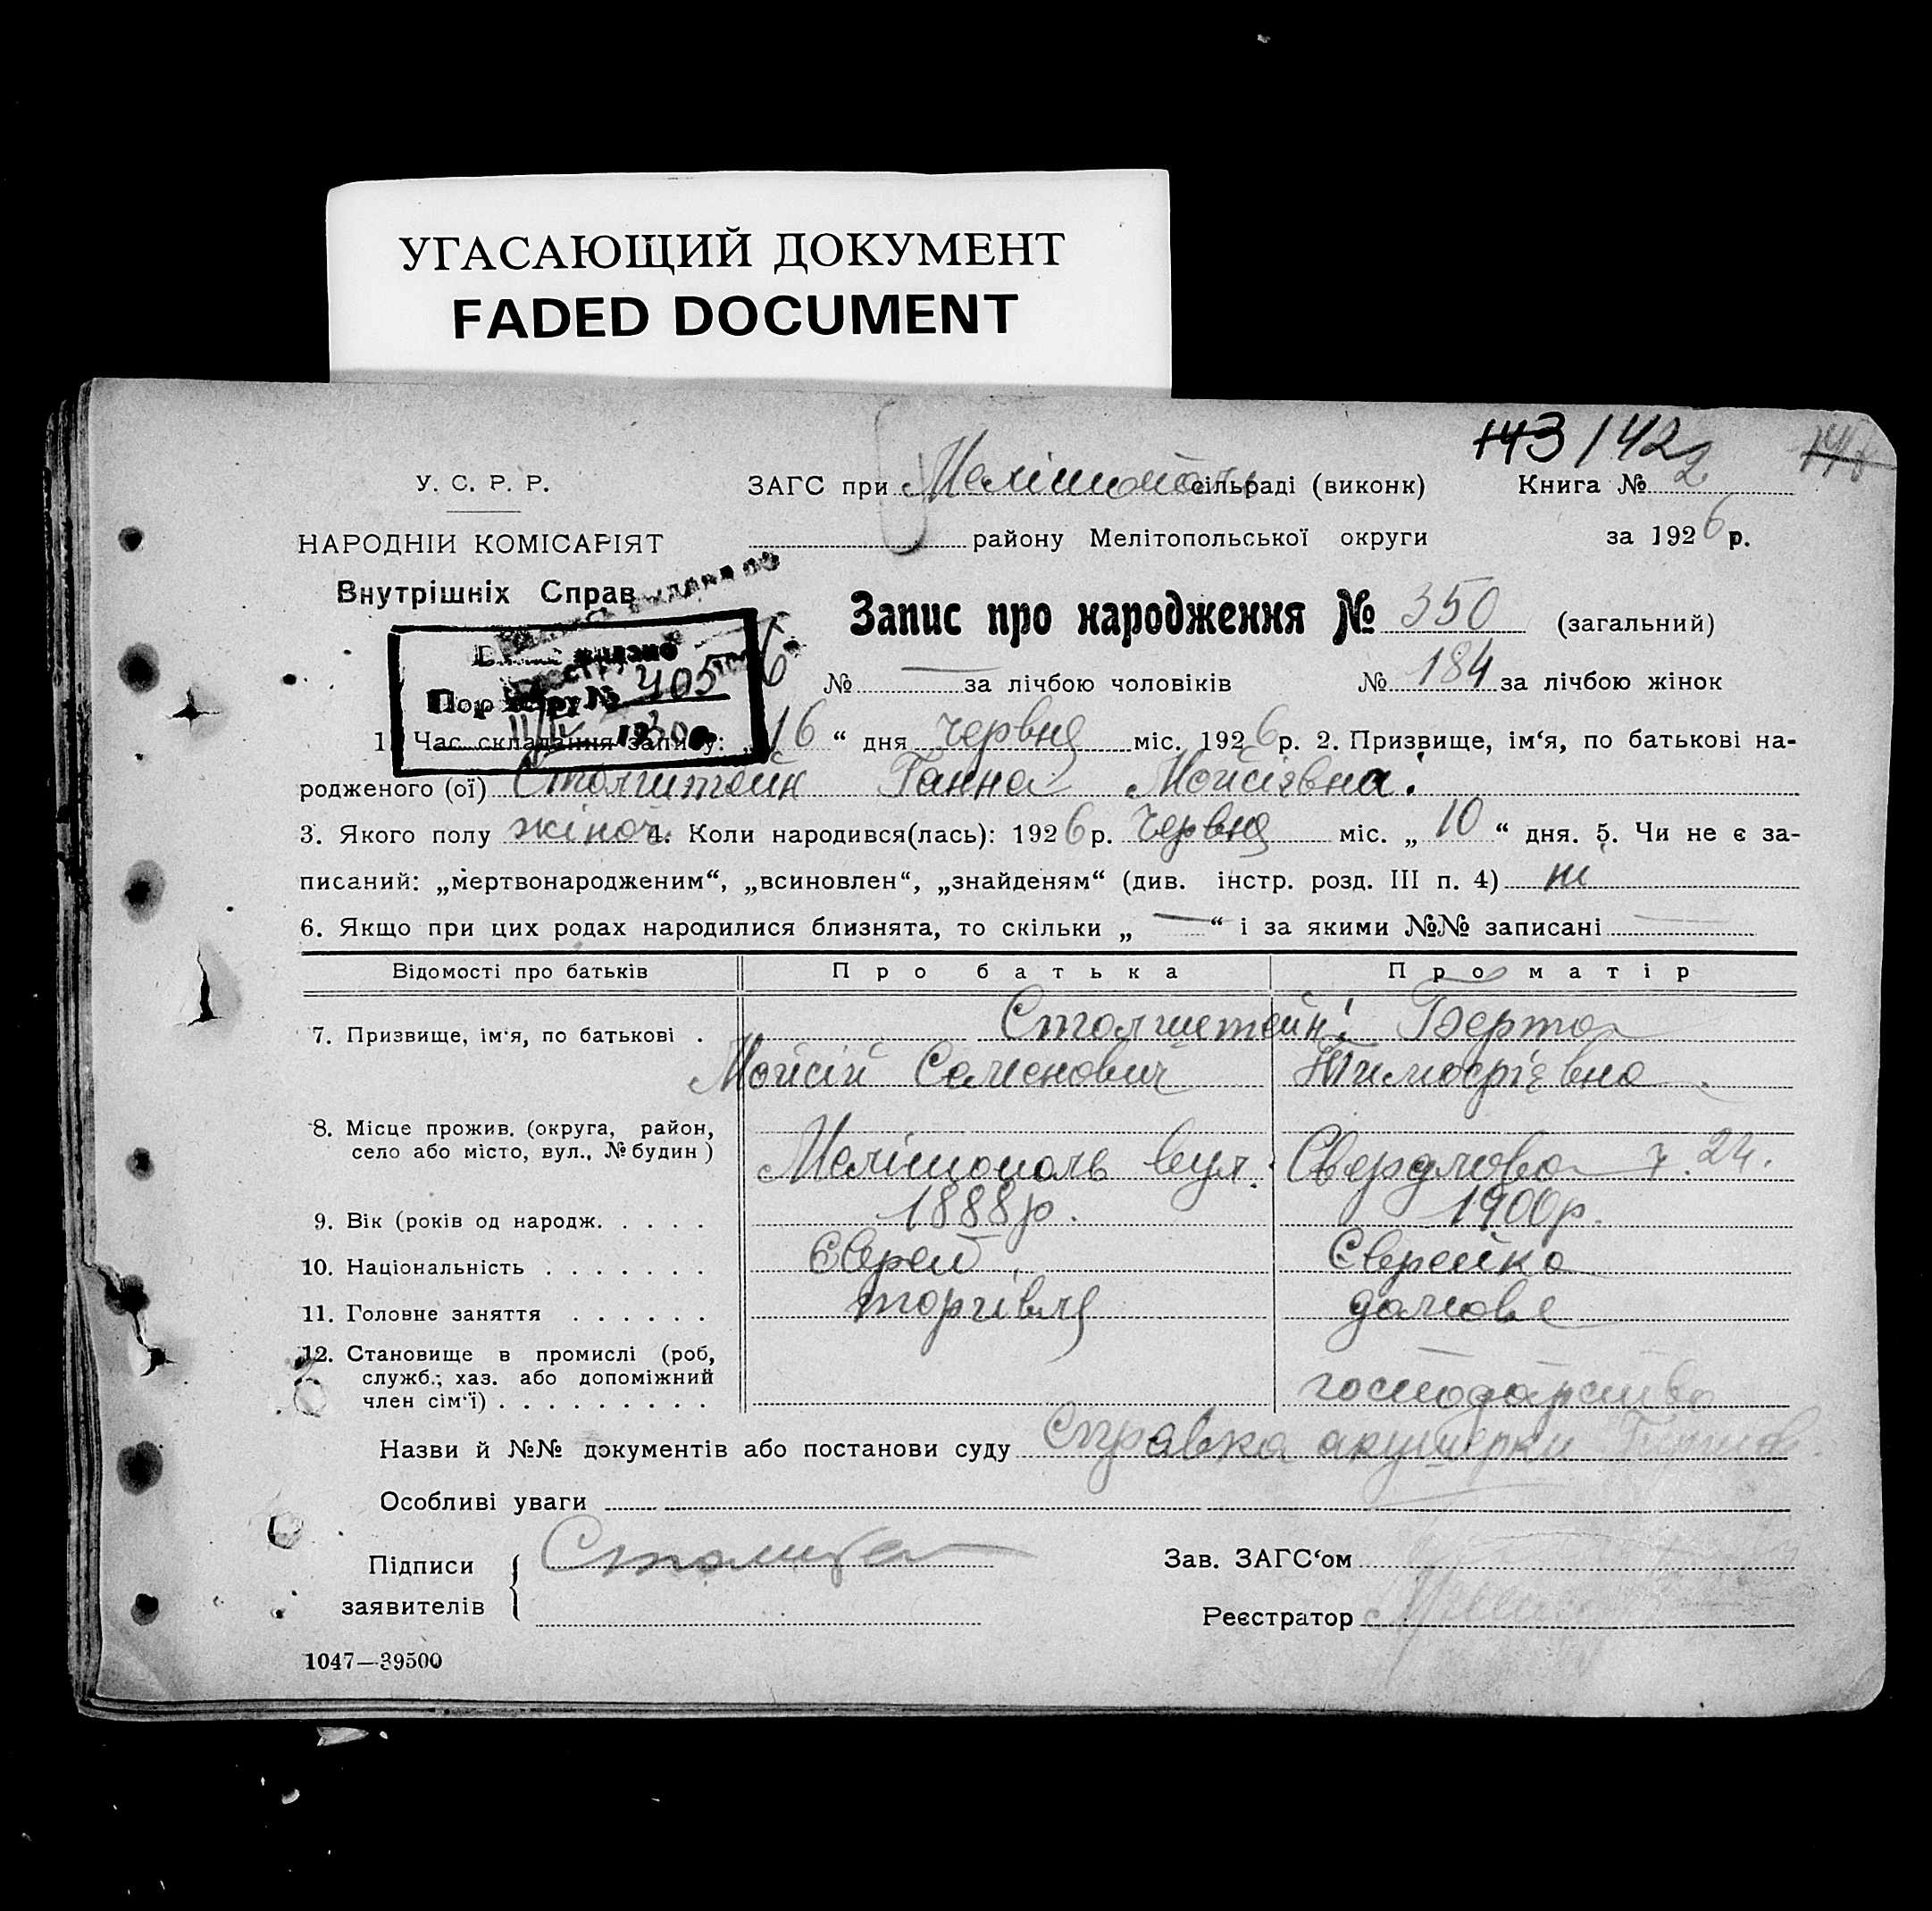 УГАСАЮЩИЙ ДОКУМЕНТ
FADED DOCUMENT
143 142
У. С. Р. Р.
ЗАГС при Мелітополь сільраді (виконк) Книга № 2
НАРОДНІЙ КОМІСАРІЯТ
району Мелітопольської округи за 1926 р.
Внутрішніх Справ
Запис про народження № 350 (загальний)
видано
№ 405
№ — за лічбою чоловіків № 184 за лічбою жінок
1. Час складання запису: „16“ дня червня міс. 1926 р. 2. Призвище, ім‘я, по батькові на-
родженого (ої) Столштейн Ганна Мойсіївна.
3. Якого полу жіноч. 4. Коли народився(лась): 1926 р. Червня міс. „10“ дня. 5. Чи не є за-
писаний: „мертвонародженим“, „всиновлен“, „знайденям“ (див. інстр. розд. III п. 4) ні
6. Якщо при цих родах народилися близнята, то скільки „—“ і за якими №№ записані —
Відомості про батьків Про батька Про матір
7. Призвище, ім‘я, по батькові . Столштейн: Берта
Мойсій Семенович Тимофіївна
8. Місце прожив. (округа, район,
село або місто, вул., № будин) Мелітополь вул. Свердлова 24.
9. Вік (років од народж. . . . . 1888 р. 1900 р.
10. Національність . . . . . . . Єврей Єврейка
11. Головне заняття . . . . . . торгівля домове
12. Становище в промислі (роб,
служб.; хаз. або допоміжний
член сім‘ї) . . . . . . . . . господарство
Назви й №№ документів або постанови суду Справка акушерки
Особливі уваги
Підписи
заявителів
Зав. ЗАГС‘ом
Реєстратор
1047—39500